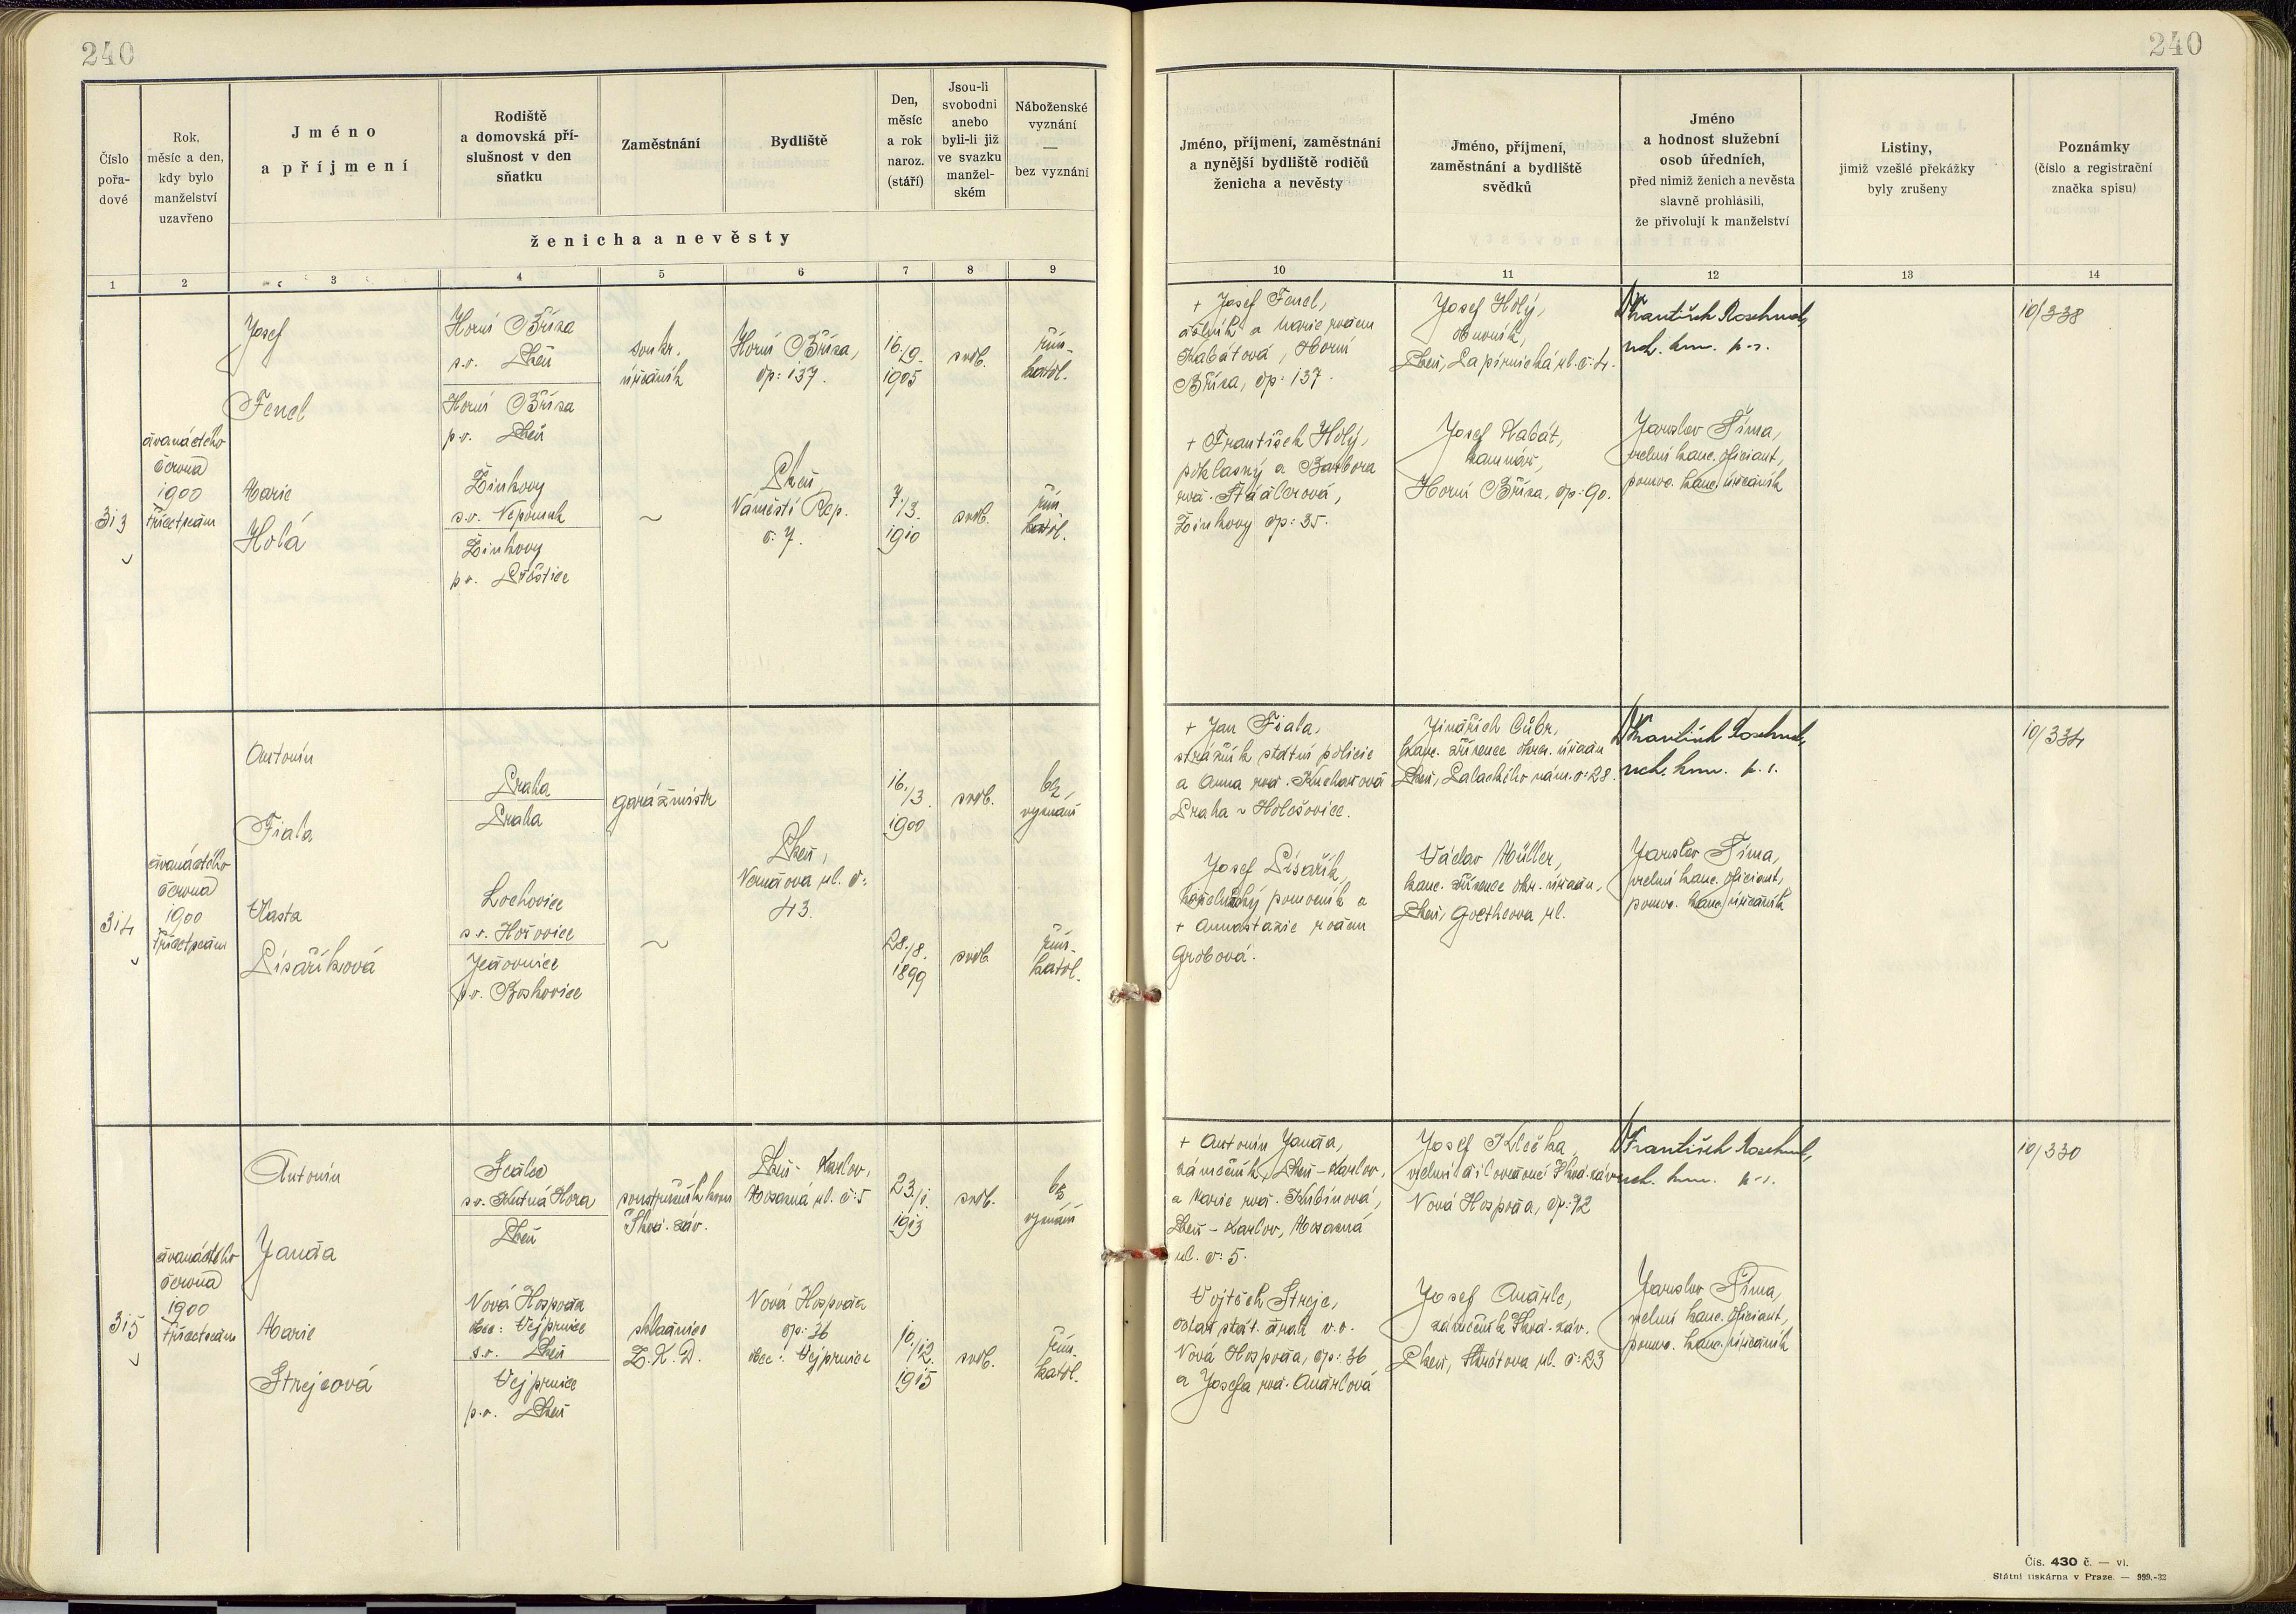 240
240
Číslo
pořa-
dové
Rok,
měsíc a den,
kdy bylo
manželství
uzavřeno
Jméno
a příjmení
Rodiště
a domovská pří-
slušnost v den
sňatku
Zaměstnání
Bydliště
Den,
měsíc
a rok
naroz.
(stáří)
Jsou-li
svobodni
anebo
byli-li již
ve svazku
manžel-
ském
Náboženské
vyznání
—
bez vyznání
ženicha a nevěsty
1 2 3 4 5 6 7 8 9
Jméno, příjmení, zaměstnání
a nynější bydliště rodičů
ženicha a nevěsty
Jméno, příjmení,
zaměstnání a bydliště
svědků
Jméno
a hodnost služební
osob úředních,
před nimiž ženich a nevěsta
slavně prohlásili,
že přivolují k manželství
Listiny,
jimiž vzešlé překážky
byly zrušeny
Poznámky
(číslo a registrační
značka spisu)
10 11 12 13 14
313
dvanáctého
června
1900
třicetsedm
Josef
Fencl
Marie
Holá
Horní Bříza
s.o. Plzeň
Horní Bříza
p.o. Plzeň
Žinkovy
s.o. Nepomuk
Žinkovy
p.o. Přeštice
soukr.
úředník
~
Horní Bříza,
čp: 137.
Plzeň,
Náměstí Rep.
č. 7.
16./9.
1905
7./3.
1910
svob.
svob.
řím.
katol.
řím.
katol.
+ Josef Fencl,
dělník a Marie rodem
Kabátová, Horní
Bříza, čp: 137.
+ František Holý,
pokladný a Barbora
rod. Städlerová,
Žinkovy čp: 35.
Josef Holý,
obuvník,
Plzeň, Papírnická ul. č: 4.
Josef Kabát,
kamnář,
Horní Bříza, čp: 90.
František
Jaroslav Šíma,
velmi kanc. oficiant,
pomoc. kanc. úředník
10/338
314
dvanáctého
června
1900
třicetsedm
Antonín
Fiala
Vlasta
Písaříková
Praha
Praha
Lochovice
s.o. Hořovice
Jedovnice
p.o. Boskovice
garážmistr
~
Plzeň,
Nerudova ul. č:
43.
16./3.
1900
28./8.
1899
svob.
svob.
bez
vyznání
řím.
katol.
+ Jan Fiala,
strážník státní policie
a Anna rod. Kuchařová
Praha ~ Holešovice.
Josef Písařík,
pomocník a
+ Annastazie rodem
Grobová.
Jindřich Cúbr,
kanc. zřízenec okres. úřadu
Plzeň, Palackého nám. č: 28.
Václav Müller,
kanc. zřízenec okr. úřadu,
Plzeň, Goetheova ul.
František
Jaroslav Šíma,
velmi kanc. oficiant,
pomoc. kanc. úředník
10/334
315
dvanáctého
června
1900
třicetsedm
Antonín
Janda
Marie
Strejcová
Sedlec
s.o. Kutná Hora
Plzeň
Nová Hospoda
obec: Vejprnice
s.o. Plzeň
Vejprnice
p.o. Plzeň
soustružník kovu
Škod. záv.
skladnice
Z.K.D.
Plzeň - Karlov,
Mosazná ul. č: 5
Nová Hospoda
čp: 36
obec: Vejprnice
23./1.
1913
10./12.
1915
svob.
svob.
bez
vyznání
řím.
katol.
+ Antonín Janda,
zámečník, Plzeň - Karlov,
a Marie rod. Kubínová,
Plzeň - Karlov, Mosazná
ul. č: 5.
Vojtěch Strejc,
stát. drah v.v.
Nová Hospoda, čp: 36
a Josefa rod. Andrlová
Josef Klečka,
Nová Hospoda, čp: 92
Josef Andrle,
zámečník Škod. záv.
Plzeň, Škrétova ul. č: 23
František
Jaroslav Šíma,
velmi kanc. oficiant,
pomoc. kanc. úředník
10/330
Čís. 430 č. — vl.
Státní tiskárna v Praze. — 999.-32